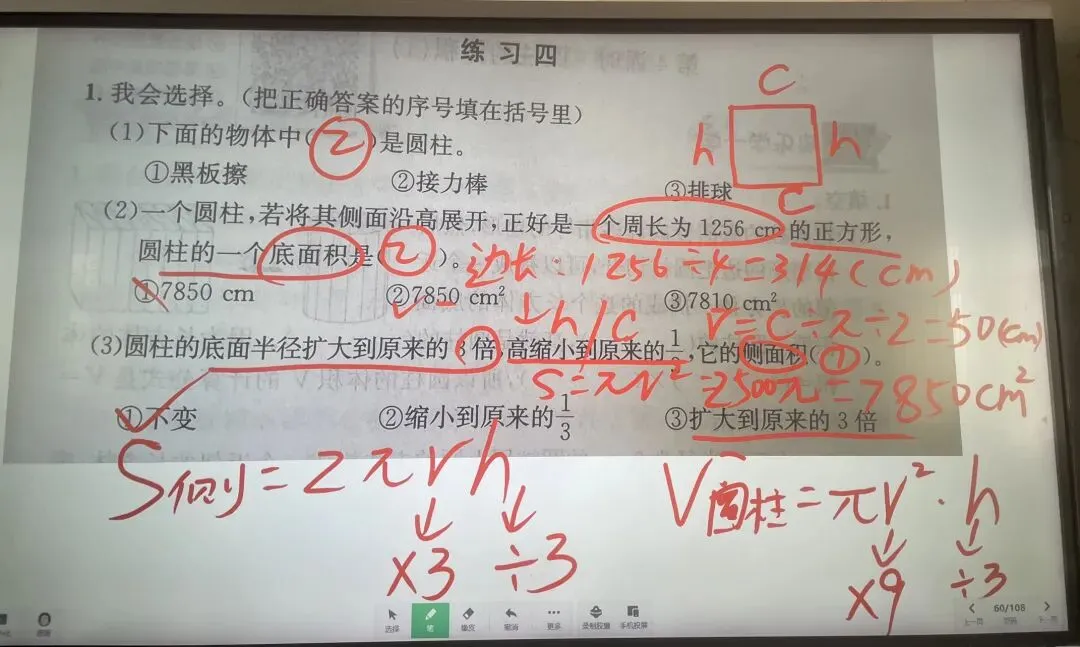 练习四
1.我会选择。(把正确答案的序号填在括号里)
(1)下面的物体中(②)是圆柱。
①黑板擦 ②接力棒 ③排球
C
h h
C
(2)一个圆柱,若将其侧面沿高展开,正好是一个周长为1256 cm的正方形,
圆柱的一个底面积是(②)。边长:1256÷4=314(cm)
①7850 cm ②7850 cm² ③7810 cm²
h/C r=C÷π÷2=50(cm)
(3)圆柱的底面半径扩大到原来的3倍,高缩小到原来的1/3,它的侧面积(①)。
S=πr²=2500π=7850cm²
①不变 ②缩小到原来的1/3 ③扩大到原来的3倍
S侧=2πrh V圆柱=πr²·h
×3 ÷3 ×9 ÷3
选择 笔 橡皮 撤消 更多 录制胶囊 手机投屏
60/108
上一页 下一页